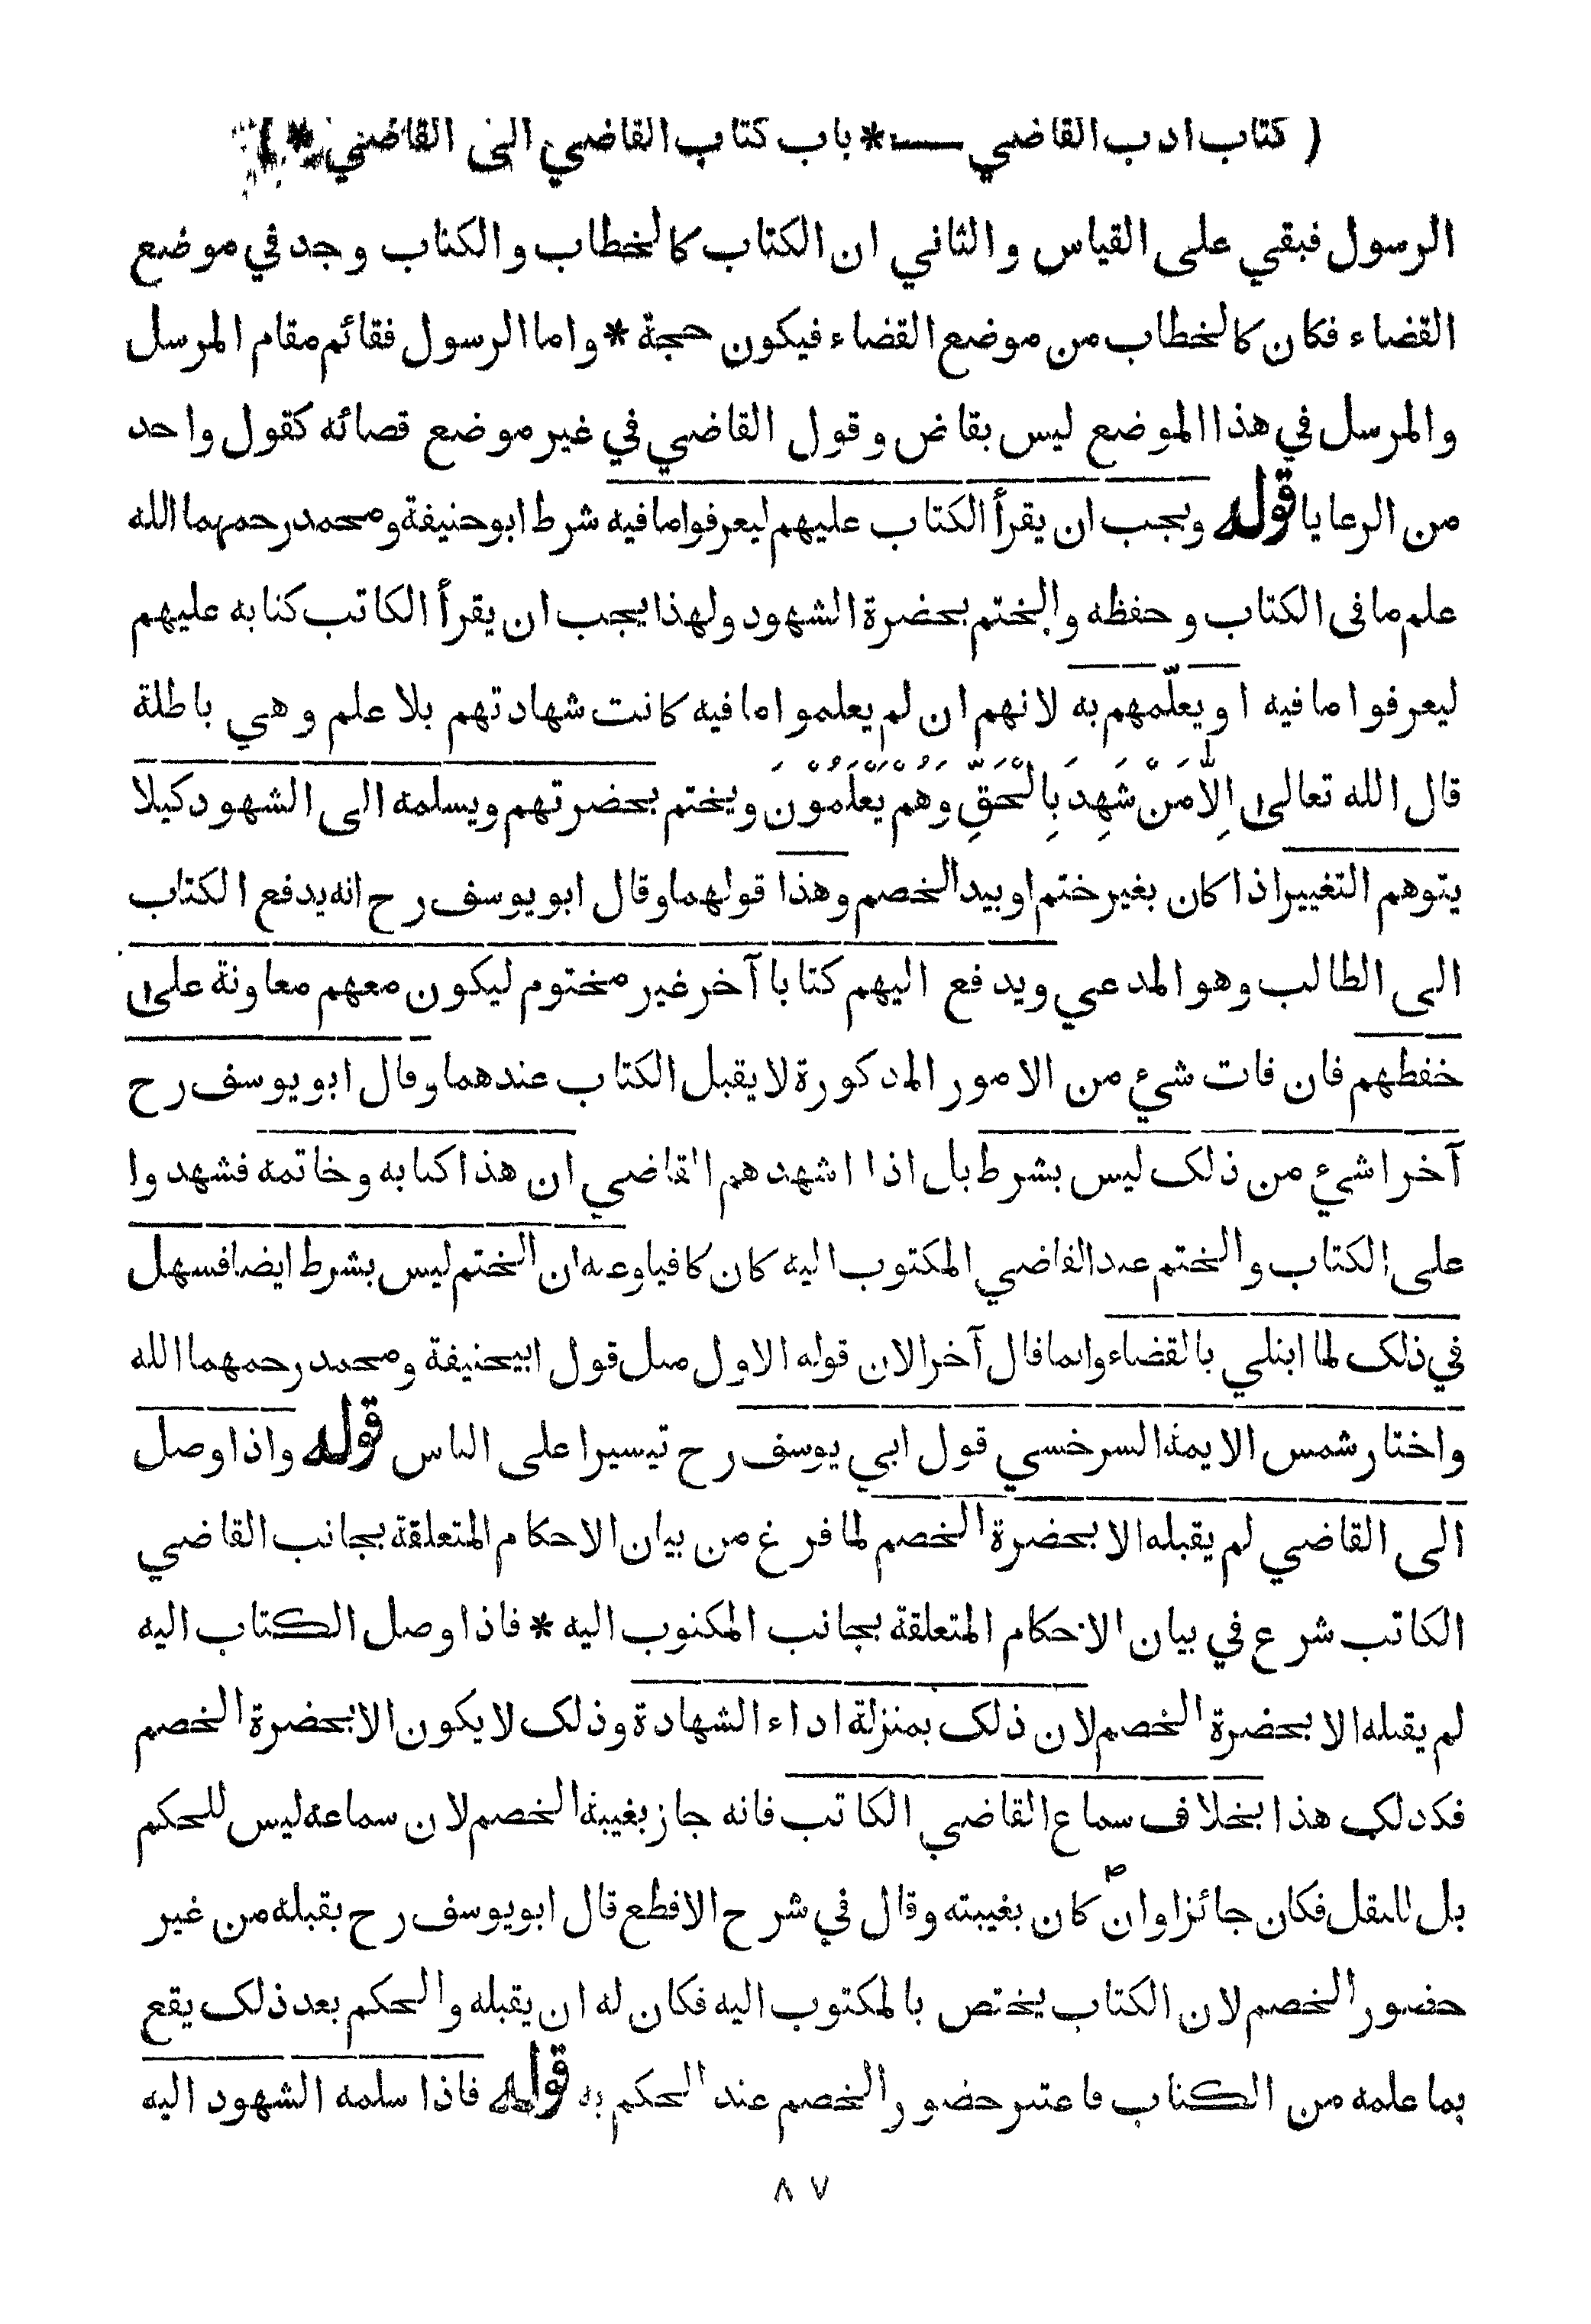 ( كتاب ادب القاضي ـــــ * باب كتاب القاضي الى القاضي * )
الرسول فبقي على القياس والثاني ان الكتاب كالخطاب والكتاب وجد في موضع
القضاء فكان كالخطاب من موضع القضاء فيكون حجة * واما الرسول فقائم مقام المرسل
والمرسل في هذا الموضع ليس بقاض وقول القاضي في غير موضع قضائه كقول واحد
من الرعايا قوله ويجب ان يقرأ الكتاب عليهم ليعرفوا ما فيه شرط ابوحنيفة ومحمد رحمهما الله
علم ما في الكتاب وحفظه والختم بحضرة الشهود ولهذا يجب ان يقرأ الكاتب كتابه عليهم
ليعرفوا ما فيه او يعلّمهم به لانهم ان لم يعلموا ما فيه كانت شهادتهم بلا علم وهي باطلة
قال الله تعالى اِلَّا مَنْ شَهِدَ بِالْحَقِّ وَهُمْ يَعْلَمُوْنَ ويختم بحضرتهم ويسلمه الى الشهود كيلا
يتوهم التغيير اذا كان بغير ختم او بيد الخصم وهذا قولهما وقال ابويوسف رح انه يدفع الكتاب
الى الطالب وهو المدعي ويدفع اليهم كتابا آخر غير مختوم ليكون معهم معاونة على
حفظهم فان فات شيء من الامور المذكورة لا يقبل الكتاب عندهما وقال ابويوسف رح
آخرا شيء من ذلك ليس بشرط بل اذا اشهدهم القاضي ان هذا كتابه وخاتمه فشهدوا
على الكتاب والختم عند القاضي المكتوب اليه كان كافيا وعنه ان الختم ليس بشرط ايضا فسهل
في ذلك لما ابتلي بالقضاء وانما قال آخرا لان قوله الاول مثل قول ابيحنيفة ومحمد رحمهما الله
واختار شمس الايمة السرخسي قول ابي يوسف رح تيسيرا على الناس قوله واذا وصل
الى القاضي لم يقبله الا بحضرة الخصم لما فرغ من بيان الاحكام المتعلقة بجانب القاضي
الكاتب شرع في بيان الاحكام المتعلقة بجانب المكتوب اليه * فاذا وصل الكتاب اليه
لم يقبله الا بحضرة الخصم لان ذلك بمنزلة اداء الشهادة وذلك لا يكون الا بحضرة الخصم
فكذلك هذا بخلاف سماع القاضي الكاتب فانه جاز بغيبة الخصم لان سماعه ليس للحكم
بل للنقل فكان جائزا وان كان بغيبته وقال في شرح الاقطع قال ابويوسف رح بقبله من غير
حضور الخصم لان الكتاب يختص بالمكتوب اليه فكان له ان يقبله والحكم بعد ذلك يقع
بما علمه من الكتاب فاعتبر حضور الخصم عند الحكم به قوله فاذا سلمه الشهود اليه
٨٧